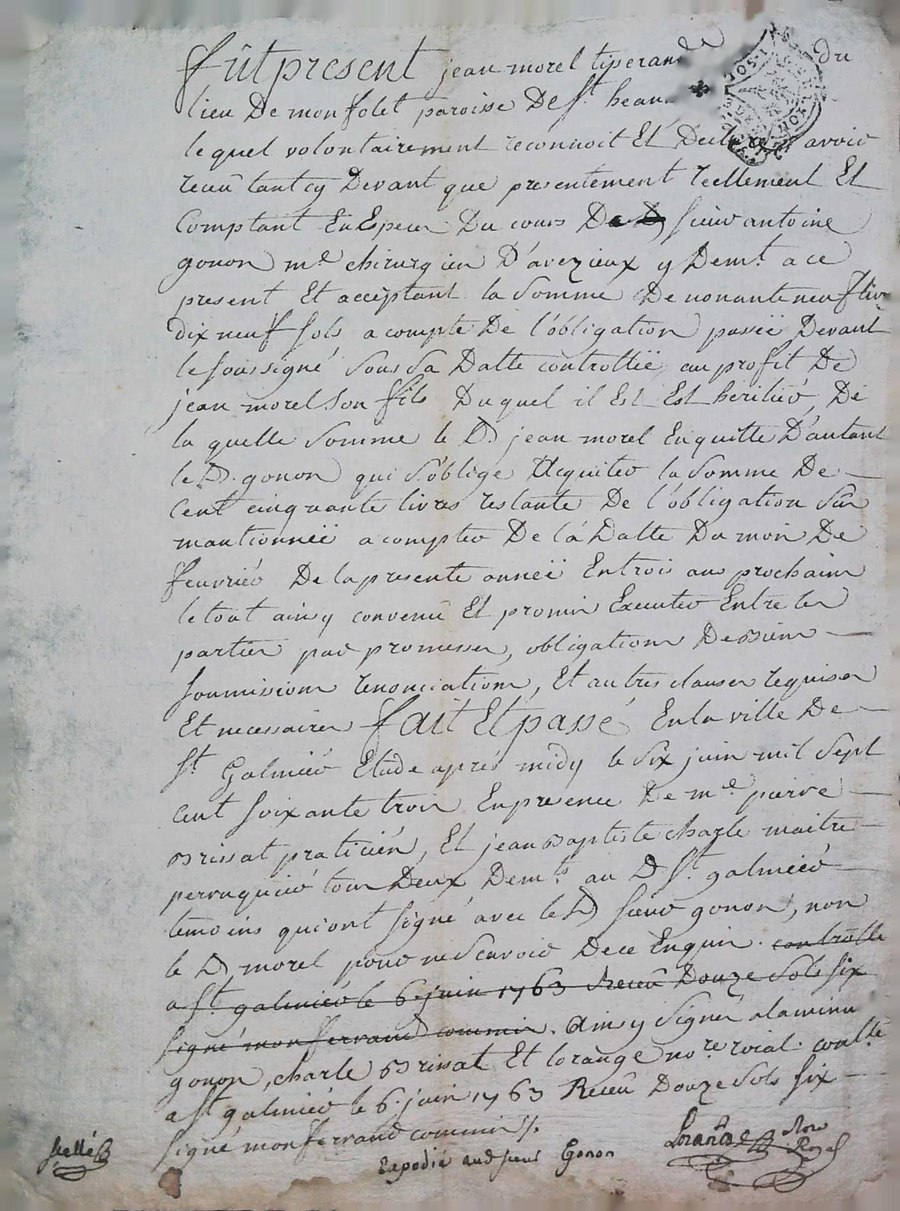 fût present jean morel tiperand du
lieu De monfolet paroise De St. hean
lequel volontairement reconnoit Et Declare avoir
receu tant cy Devant que presentement reellement Et
Comptant En Espece Du cours sieur antoine
gonon me. chirurgien D'avezieux y Demt. a ce
present Et acceptant la Somme De nonante neuf liv
dix neuf sols a compte De l'obligation passeë Devant
le soussigné Sous Sa Datte controlleë, au profit De
jean morel son fils Duquel il Est Est heritier, De
la quelle Somme le D. jean morel En quitte D'autant
le D. gonon qui s'oblige Acquiter la Somme De
Cent cinquante livres restante De l'obligation Sûs
mantionneë a compter De la Datte Du mois De
feuvrier De la presente anneë En trois ans prochain
le tout ainsy convenû Et promis Executer Entre les
parties par promesses, obligations De Biens
soumissions renonciations, Et autres clauses requises
Et necessaires fait Et passé En la ville De
St. Galmier Etude aprés midy le six juin mil sept
cent soixante trois En presence De me. pierre
Brissat praticién, Et jean Baptiste charle maitre
perruquier tous Deux Demts. au D. St. galmier
temoins qui ont signé avec le D. sieur gonon, non
le D. morel pour ne Scavoir De ce Enquis. controlle
a St. galmier le 6. juin 1763 Receû Douze Sols six
signé monferrand commis. Ainsy Signés a la minu
gonon, charle Brissat Et lorange nore. roial. conlle.
a St. galmier le 6. juin 1763 Receû Douze Sols six
signé monferrand commis ./.
Scellé
Expedié audsieur Gonon
Lorange Nore
Royal